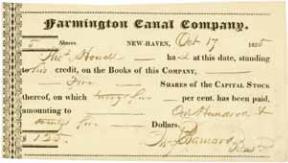 Farmington Canal Company.
5 Shares NEW-HAVEN, Oct 17 1825
Thos Howell ha d at this date, standing
to his credit, on the Books of this COMPANY,
Five SHARES of the CAPITAL STOCK
thereof, on which twenty five per cent. has been paid,
amounting to One Hundred &
twenty five Dollars.
$ 125